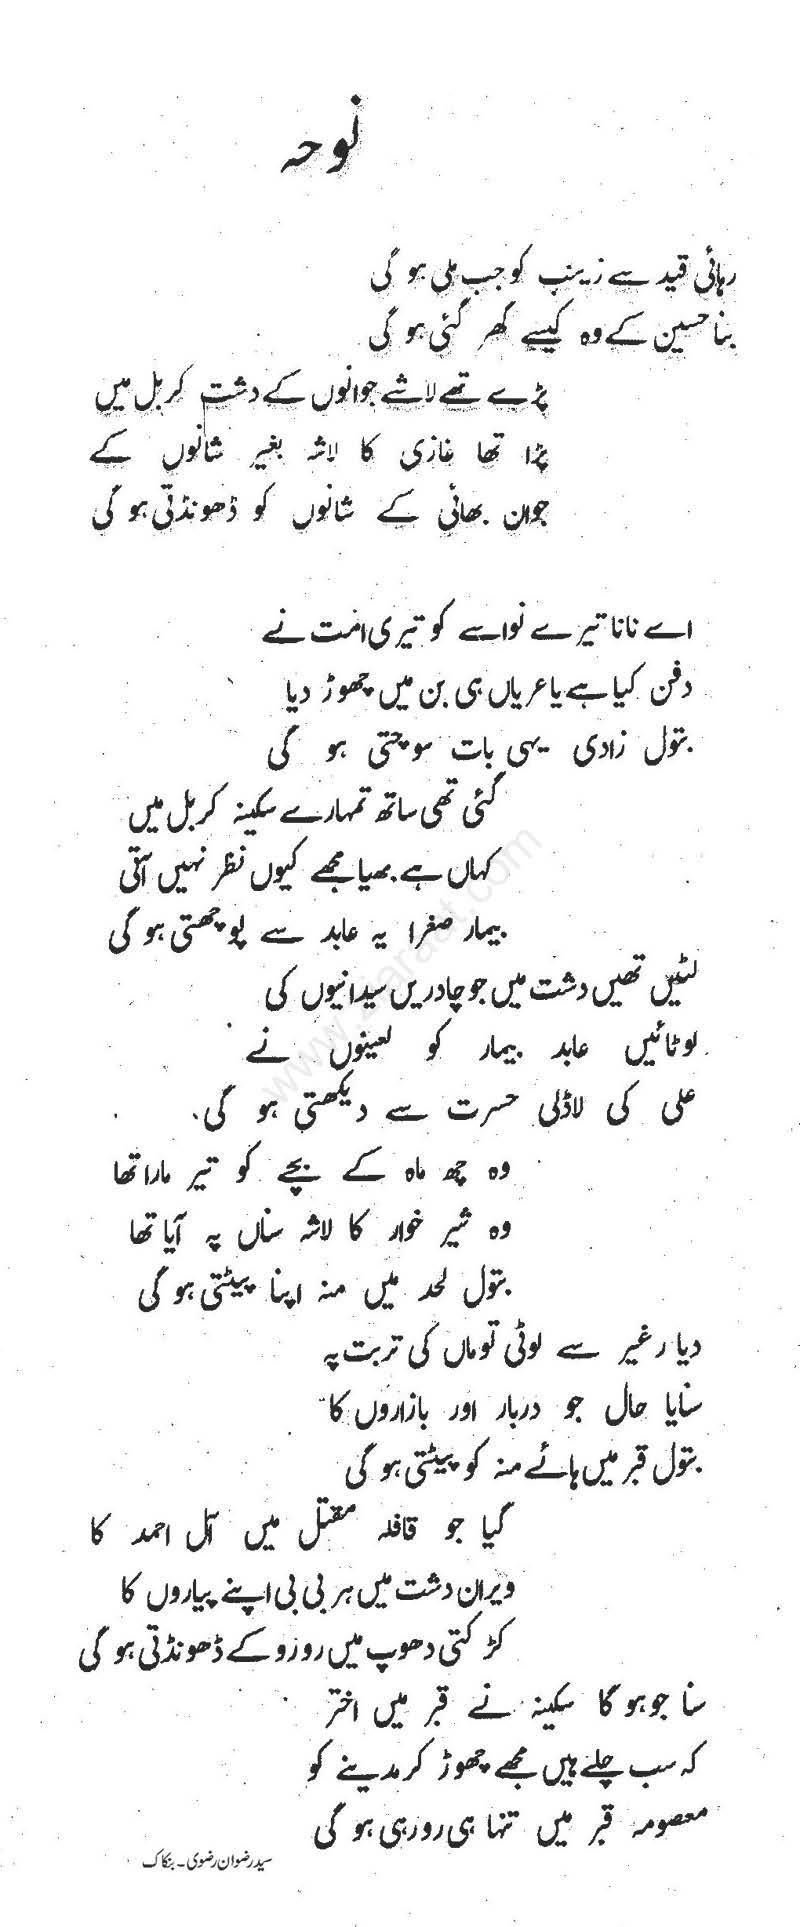 نوحہ
رہائی قید سے زینب کو جب ملی ہو گی
بنا حسین کے وہ کیسے گھر گئی ہو گی
پڑے تھے لاشے جوانوں کے دشت کربل میں
پڑا تھا غازی کا لاشہ بغیر شانوں کے
جوان بھائی کے شانوں کو ڈھونڈتی ہو گی
اے نانا تیرے نواسے کو تیری امت نے
دفن کیا ہے یا عریاں ہی بن میں چھوڑ دیا
بتول زادی یہی بات سوچتی ہو گی
گئی تھی ساتھ تمہارے سکینہ کربل میں
کہاں ہے بھیا مجھے کیوں نظر نہیں آتی
بیمار صغرا یہ عابد سے پوچھتی ہو گی
لٹیں تھیں دشت میں جو چادریں سیدانیوں کی
لوٹائیں عابد بیمار کو لعینوں نے
علی کی لاڈلی حسرت سے دیکھتی ہو گی.
وہ چھ ماہ کے بچے کو تیر مارا تھا
وہ شیر خوار کا لاشہ سناں پہ آیا تھا
بتول لحد میں منہ اپنا پیٹتی ہو گی
دیار غیر سے لوٹی تو ماں کی تربت پہ
سنایا حال جو دربار اور بازاروں کا
بتول قبر میں ہائے منہ کو پیٹتی ہو گی
گیا جو قافلہ مقتل میں آل احمد کا
ویران دشت میں ہر بی بی اپنے پیاروں کا
کڑکتی دھوپ میں رو رو کے ڈھونڈتی ہو گی
سنا جو ہو گا سکینہ نے قبر میں اختر
کہ سب چلے ہیں مجھے چھوڑ کر مدینے کو
معصومہ قبر میں تنہا ہی رو رہی ہو گی
سید رضوان رضوی۔ بنکاک
www.ziaraat.com